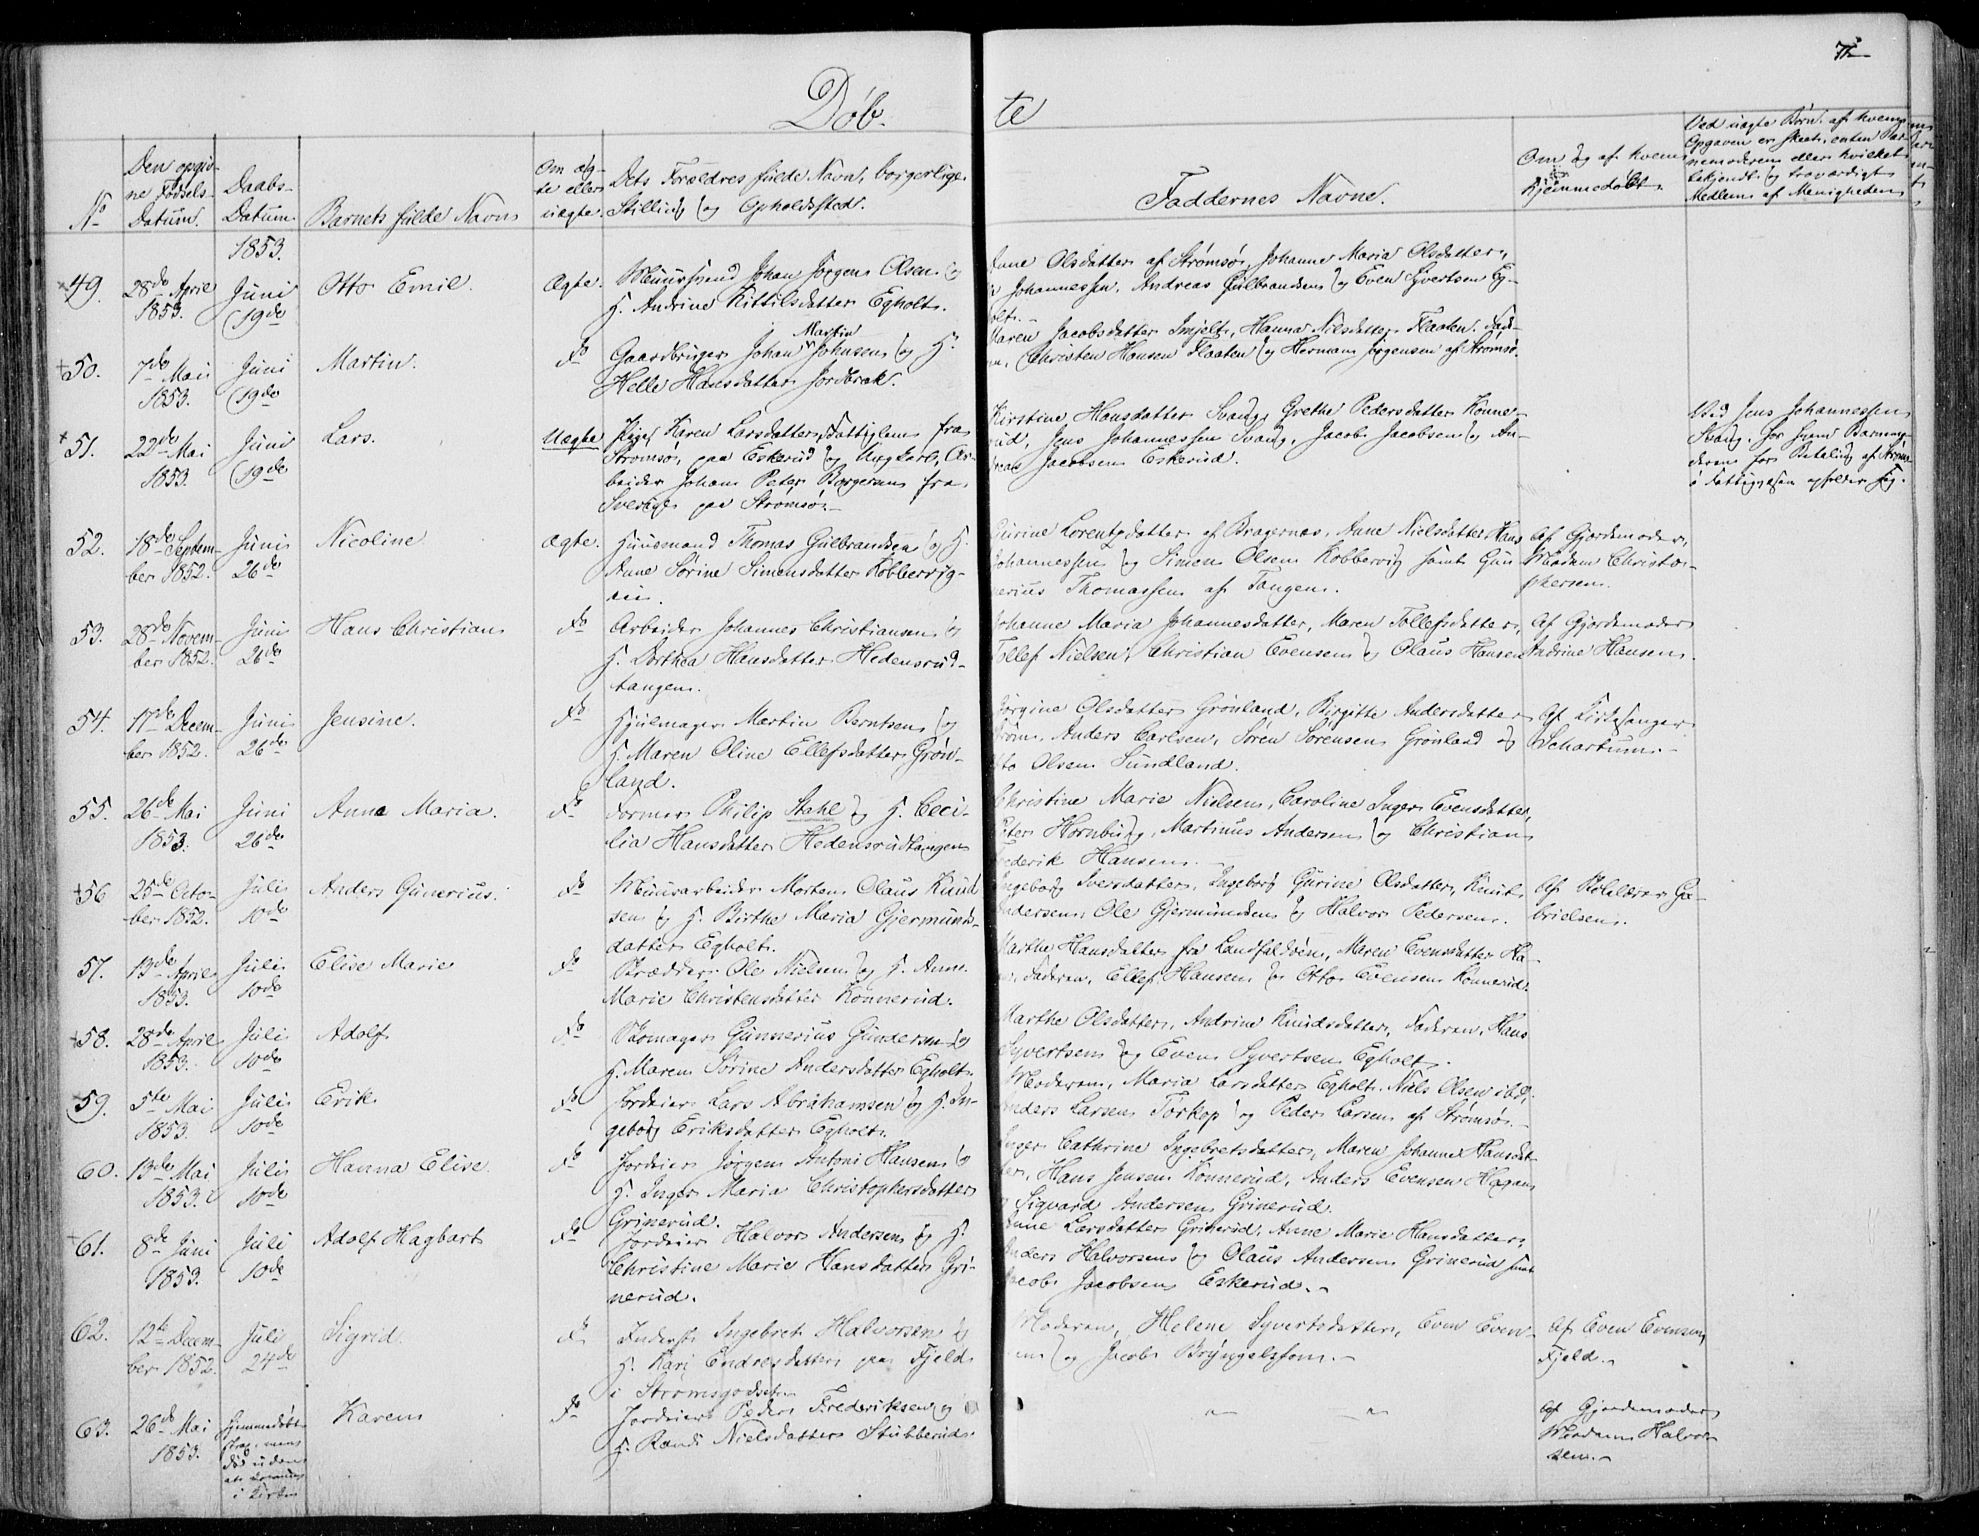 72
Døb-
te
No
Den opgiv-
ne Fødsels-
Datum.
Daabs-
Datum.
Barnets fulde Navn
Om æg-
te eller
uægte.
Dets Forældres fulde Navn, borgerlige
Stilling og Opholdssted.
Faddernes Navne.
Om og af hvem
hjemmedøbt.
Ved uægte Børn af hvem
Opgaven er skeet, enten Bar-
nemoderen eller hvilket
bekjendt og troværdigt
Medlem af Menigheden
1853.
49.
28de April
1853.
Juni
19de
Otto Emil.
Ægte.
Muursvend Johan Jørgen Olsen og
H. Andrine Kittilsdatter Egholt.
Anne Olsdatter af Strømsø, Johanne Maria Olsdatter,
Johannessen, Andreas Gulbrandsen og Even Syvertsen Eg-
holt.
50.
7de Mai
1853.
Juni
19de
Martin.
do
Gaardbruger Johan Martin Johnsen og H.
Helle Hansdatter Jordbræk.
Maren Jacobsdatter Smjelt, Hanna Nilsdatter Flaaten. Fade-
ren, Christen Hansen Flaaten og Herman Jørgensen af Strømsø.
51.
22de Mai
1853.
Juni
19de
Lars.
Uægte
Pige Karen Larsdatter, Fattiglem fra
Strømsø, paa Eskerud og Ungkarl, Ar-
beider Johan Peter Borgerson fra
Sverige paa Strømsø.
Kirstine Hansdatter Svang, Grethe Pedersdatter Konne-
rud, Jens Johannessen Svang, Jacob Jacobsen og An-
dreas Jacobsen Eskerud.
Ved Jens Johannessen
Svang, hos hvem Barnemo-
deren for Betaling af Strøms-
ø Fattigvæsen opholder sig.
52.
18de Septem-
ber 1852.
Juni
26de
Nicoline
Ægte.
Huusmand Thomas Gulbrandsen og H.
Anne Sørine Simensdatter Kobbervig-
eie.
Gurine Lorentzdatter af Bragernæs, Anne Nielsdatter, Hans
Johannessen og Simen Olsen Kobbervig samt Gun-
nerius Thomassen af Tangen.
Af Gjordemoder,
Madam Christo-
phersen.
53.
28de Novem-
ber 1852.
Juni
26de
Hans Christian
do
Arbeider Johannes Christiansen og
H. Dorthea Hansdatter Hedensrud-
tangen.
Johanne Maria Johannesdatter, Maren Tollefsdatter,
Tollef Nielsen, Christian Evensen og Olaus Hansen
Af Gjordemoder
Andrine Hansen.
54.
17de Decem-
ber 1852.
Juni
26de
Jensine.
do
Hjulmager Martin Berntsen og
H. Maren Oline Ellefsdatter Grøn-
land.
Jørgine Olsdatter Grønland, Birgitte Andersdatter
Strøm, Anders Carlsen, Søren Sørensen Grønland og
Otto Olsen Sundland.
Af Kirkesanger
Schartum.
55.
26de Mai
1853.
Juni
26de
Anne Maria.
do
Former Philip Stahl og H. Ceci-
lia Hansdatter Hedensrudtangen
Christine Marie Nielsen, Caroline Inger Evensdatter,
Peter Hornburg, Martinus Andersen og Christian
Frederik Hansen.
56
25de Octo-
ber 1852.
Juli
10de
Anders Gunerius.
do
Muurarbeider Morten Olaus Knud-
sen og H. Birthe Maria Gjermunds-
datter Egholt.
Ingeborg Iversdatter, Ingeborg Gurine Olsdatter, Knut
Andersen, Ole Gjermundsen og Halvor Pedersen.
Af Skolelærer Ga-
brielsen.
57.
13de April
1853.
Juli
10de
Elise Marie
do
Skrædder Ole Nielsen og H. Anne
Marie Christensdatter Konnerud.
Marthe Hansdatter fra Landfaldøen, Maren Evensdatter Ha-
gen, Faderen, Ellef Hansen og Otto Evensen Konnerud.
58.
28de April
1853.
Juli
10de
Adolf
do
Skomager Gunnerius Gundersen og
H. Maren Sørine Andersdatter Egholt
Marthe Olsdatter, Andrine Knudsdatter, Faderen, Hans
Syvertsen og Even Syvertsen Egholt.
59.
5te Mai
1853.
Juli
10de
Erik
do
Jordeier Lars Abrahamsen og H. In-
geborg Eriksdatter Egholt.
Moderen, Maria Larsdatter Egholt. Niels Olsen ibd,
Anders Larsen Torkop og Peder Larsen af Strømsø.
60.
13de Mai
1853.
Juli
10de
Hanna Elise
do
Jordeier Jørgen Antoni Hansen og
H. Inger Maria Christophersdatter
Grinerud.
Inger Cathrine Ingebretsdatter, Maren Johanne Hansdat-
ter, Hans Jensen Konnerud, Anders Evensen Hagan
og Sigvard Andersen Grinerud.
61.
8de Juni
1853.
Juli
10de
Adolf Hagbart
do
Jordeier Halvor Andersen og H.
Christine Marie Hansdatter Gri-
nerud.
Anne Larsdatter Grinerud, Anne Marie Hansdatter,
Anders Halvorsen og Olaus Andersen Grinerud samt
Jacob Jacobsen Eskerud.
62.
12te Decem-
ber 1852
Juli
24de
Sigrid
do
Inderst Ingebret Halvorsen og
H. Kari Endresdatter paa Fjeld
i Strømsgodset.
Moderen, Helene Syvertsdatter, Even Even-
sen og Jacob Bryngelsson.
Af Even Evensen
Fjeld.
63.
26de Mai
1853.
Hjemmedøbt
strax, men
død uden
at komme
i Kirke
Karen
do
Jordeier Peder Frederiksen og
H. Randi Nielsdatter Stubberud.
Af Gjordemoder
Madam Halvor-
sen.